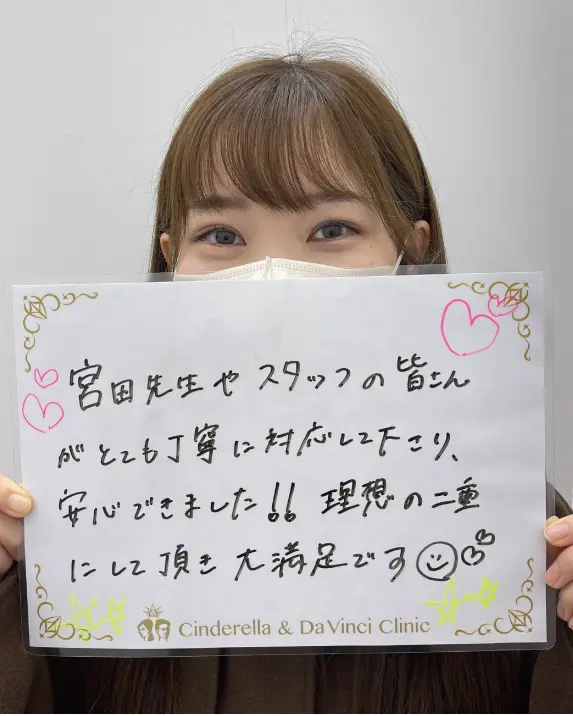 宮田先生や スタッフの 皆さん
がとても丁寧に対応して下さり、
安心できました!! 理想の二重
にして頂き 大満足です
Cinderella & DaVinci Clinic